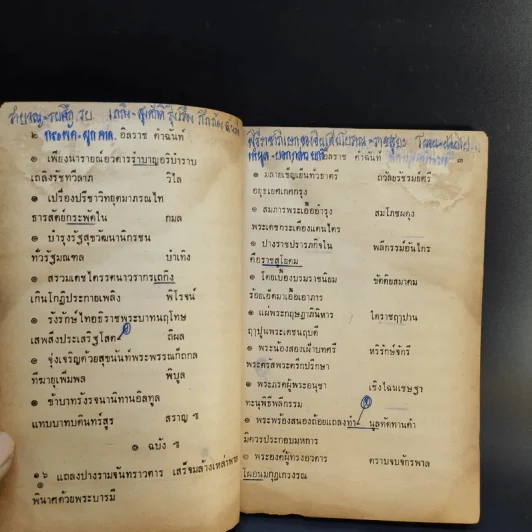 ๒ อิลราช คำฉันท์
๏ เพียงนารายณ์อวตารรำบาญอริบาราบ
เถลิงรัชทวีลาภ วิไล
๏ เปรื่องปรีชาวิทยุตมาภรณไท
ธารสัตย์กระพัดใน กมล
๏ บำรุงรัฐสุขวัฒนานิกรชน
ทั่วรัฐมณฑล บำเทิง
๏ สรวมเดชไตรรตนาวรากรเถกิง
เกินโกฏิประกายเพลิง พิโรจน์
๏ รังรักษ์ไทอธิราชพระบาทนฤโทษ
เสพสิ่งประเสริฐโสต ถิผล
๏ จุ่งเจริญด้วยสุขนันท์พระพรรณก็ถกล
ทีฆายุเพิ่มพล พิบูล
๏ ข้าบาทรังรจนานิทานอิลทูล
แทบบาทบดินทร์สูร สราญ ฯ
๏ ฉบัง ฯ
๑๖ แถลงปางรามจันทราวตาร เสร็จมล้างเหล่าพาล
พินาศด้วยพระบารมี
อิลราช คำฉันท์ ๓
๏ มลายเข็ญเย็นทั่วธาตรี ถวัลย์รัชรมย์ศรี
อยุธเยศเกศกรุง
๏ สมภารพระเอื้อบำรุง สมโภชผดุง
พระเดชกระเดื่องแดนไตร
๏ ปางราชปรารภกิจใน พลีกรรม์อันไกร
คือราชสูโยคม
๏ โดยเบื้องบรมราชนิยม ขัตติยสมาคม
ร้อยเอ็ดมาเอื้อเอาภาร
๏ แผ่พระกฤษฎาภินิหาร ไตราชฤๅปาน
ฤๅปูนพระเดชนฤบดี
๏ พระน้องสองเผ้าบทศรี หริรักษ์จักรี
พระตรัสพระตรึกปรึกษา
๏ พระภรตผู้พระอนุชา เชิงโฉนเชษฐา
ทะนุพิธีพลีกรรม
๏ พระพร้องสนองถ้อยแถลงทำ นูลทัดทานคำ
มิควรประกอบมหการ
๏ พระองค์ผู้ทรงอวตาร ตราบจบจักรพาล
โผอนมกุฎเกรงรณ